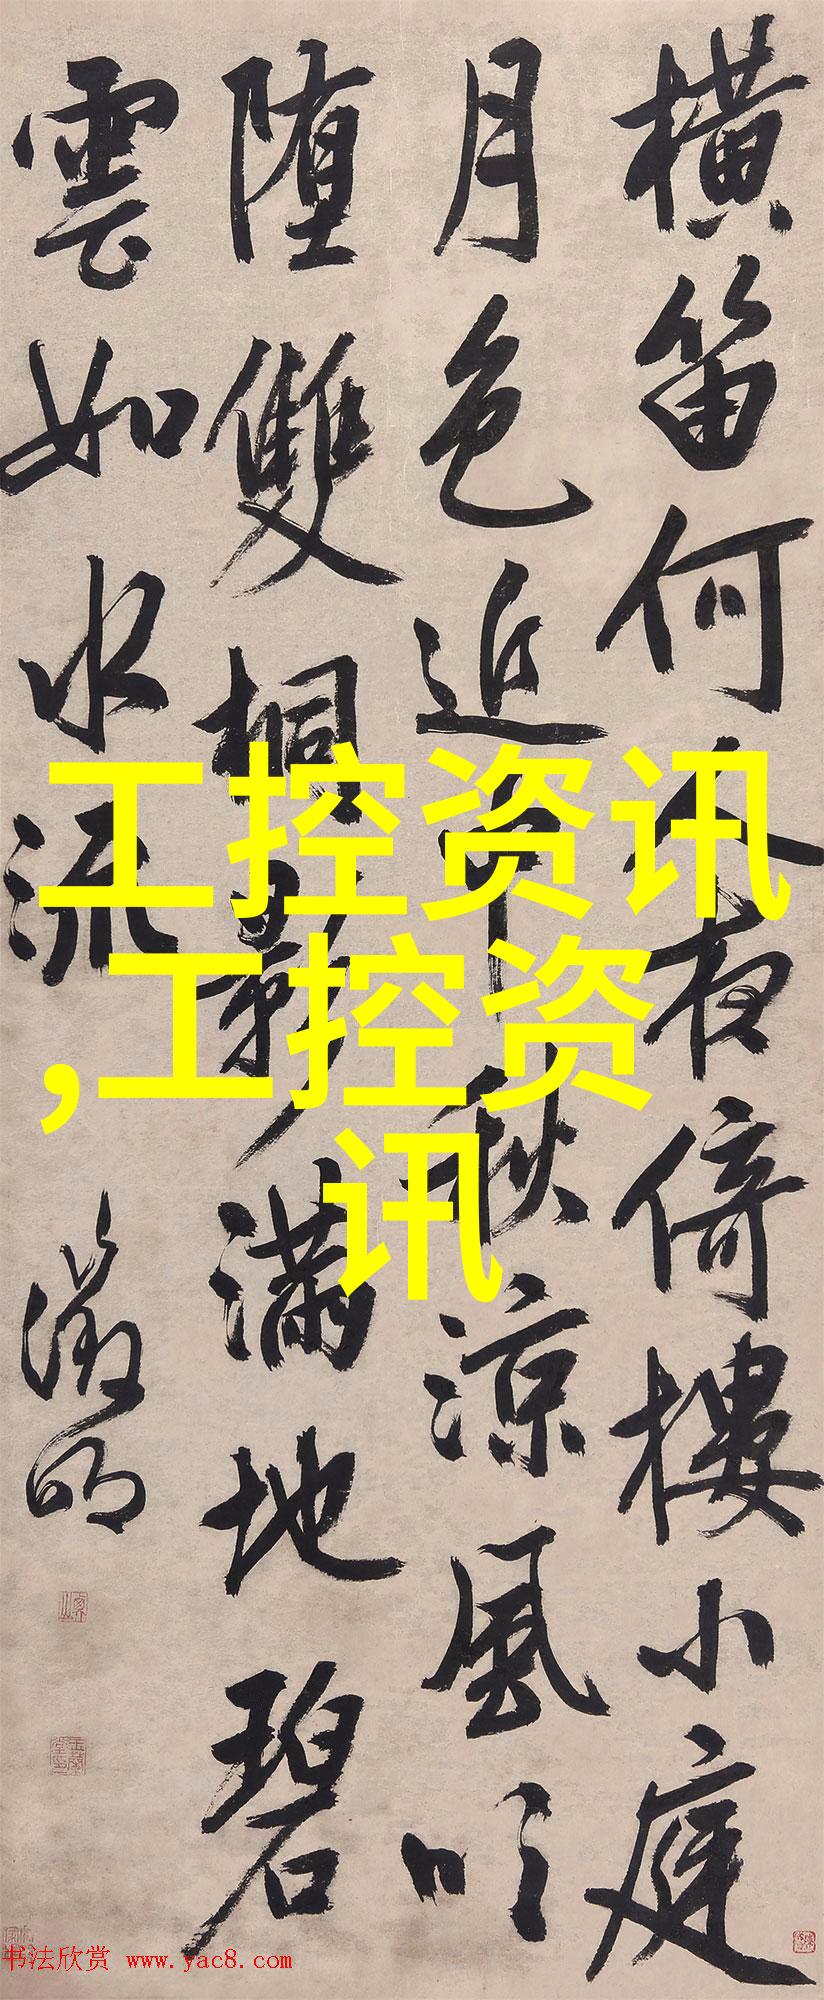 横笛何人夜倚樓小庭
月色近中秋涼風吹
堕雙桐影满地碧
雲如水流
徵明
工控资讯
,工控资
讯
书法欣赏 www.yac8.com